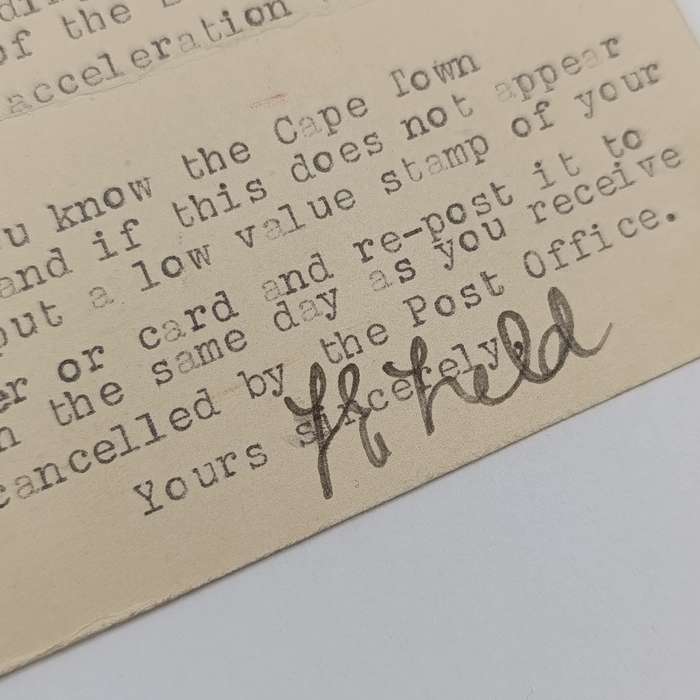 of the
acceleration
u know the Cape Town
and if this does not appear
put a low value stamp of your
er or card and re-post it to
n the same day as you receive
cancelled by the Post Office.
Yours sincerely,
Held